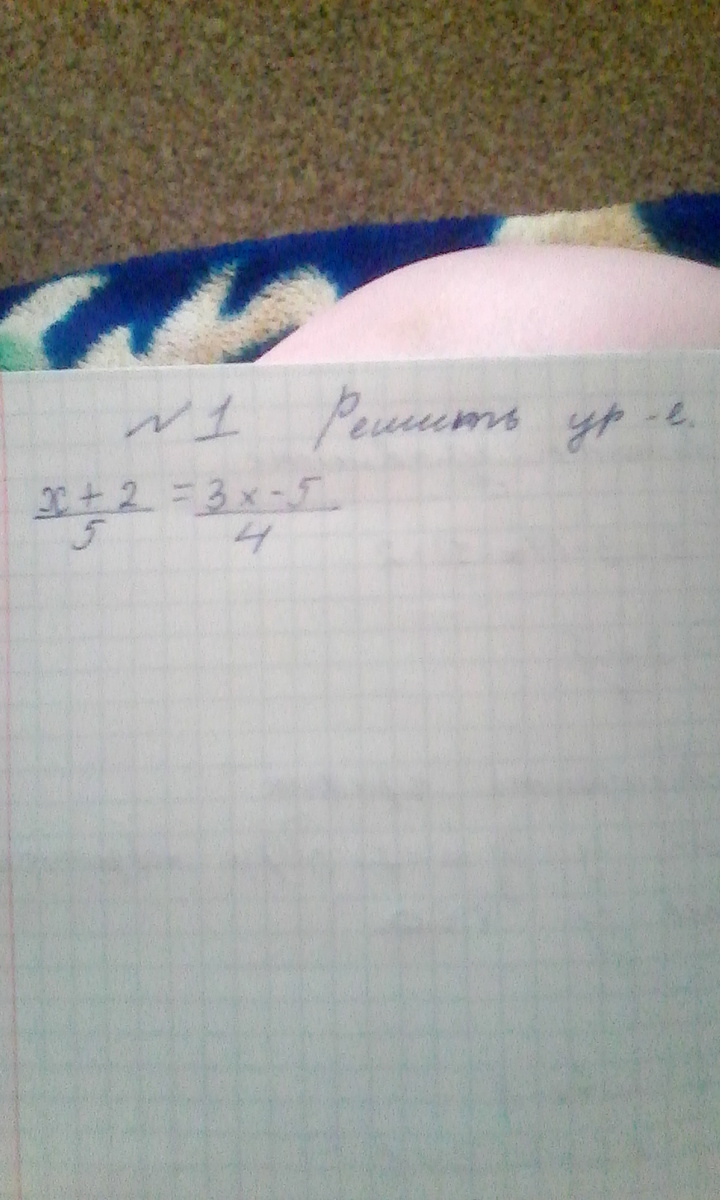 №1 Решить ур-е.
x+2/5 = 3x-5/4